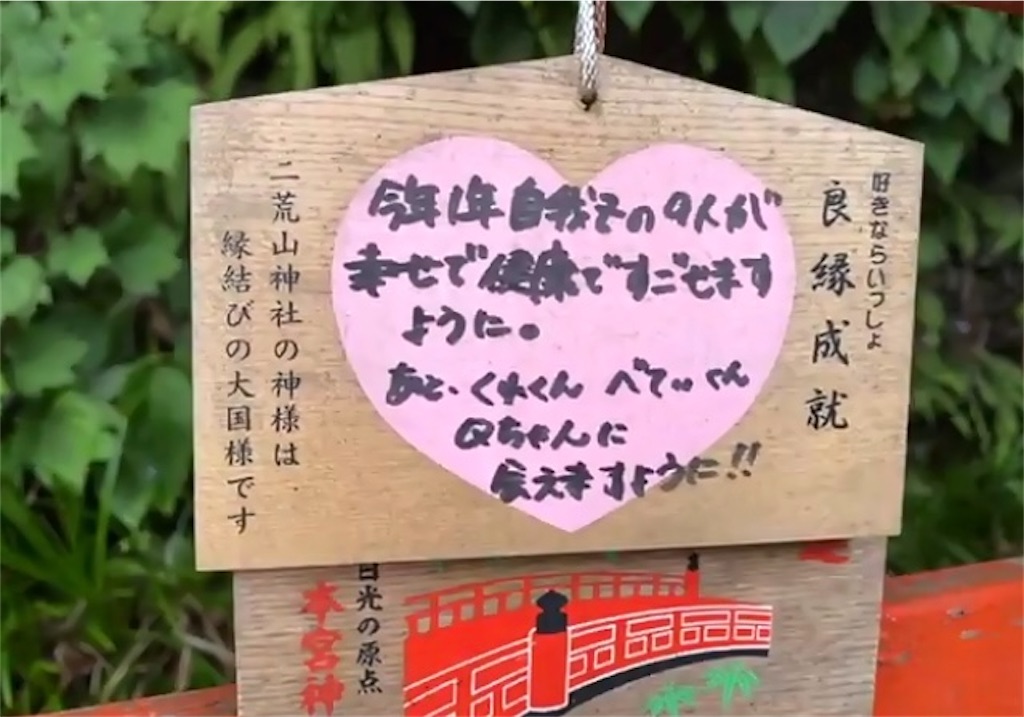 好きならいつしょ
良縁成就
今年1年自我その9人が
幸せで健康ですごせます
ように。
あと、くれくん べてぃくん
Qちゃんに
伝えますように!!
二荒山神社の神様は
縁結びの大国様です
日光の原点
本宮神